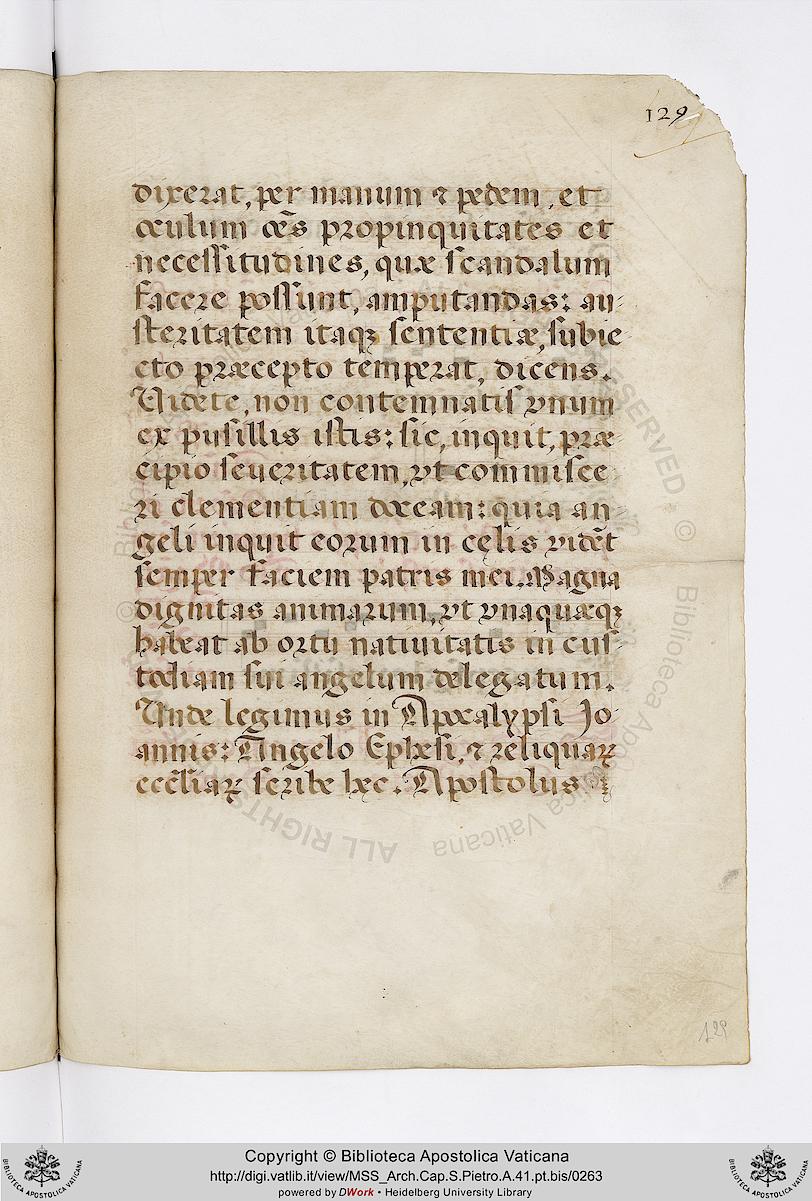 129
dixerat, per manum ⁊ pedem, et
oculum oēs propinquitates et
necessitudines, quæ scandalum
facere possunt, amputandas: au-
steritatem itaqꝫ sententiæ, subie-
cto præcepto temperat, dicens.
Videte, non contemnatis vnum
ex pusillis istis: sic, inquit, præ-
cipio seueritatem, vt commisce-
ri clementiam doceam: quia an-
geli inquit eorum in cęlis vidēt
semper faciem patris mei. Magna
dignitas animarum, vt vnaquæqꝫ
habeat ab ortu natiuitatis in cus-
todiam sui angelum delegatum.
Vnde legimus in Apocalypsi Jo-
annis: Angelo Ephesi, ⁊ reliquaꝝ
eccl̄iaꝝ scribe hęc. Apostolus
129
Copyright © Biblioteca Apostolica Vaticana
http://digi.vatlib.it/view/MSS_Arch.Cap.S.Pietro.A.41.pt.bis/0263
powered by DWork • Heidelberg University Library
BIBLIOTECA APOSTOLICA VATICANA
BIBLIOTECA APOSTOLICA VATICANA